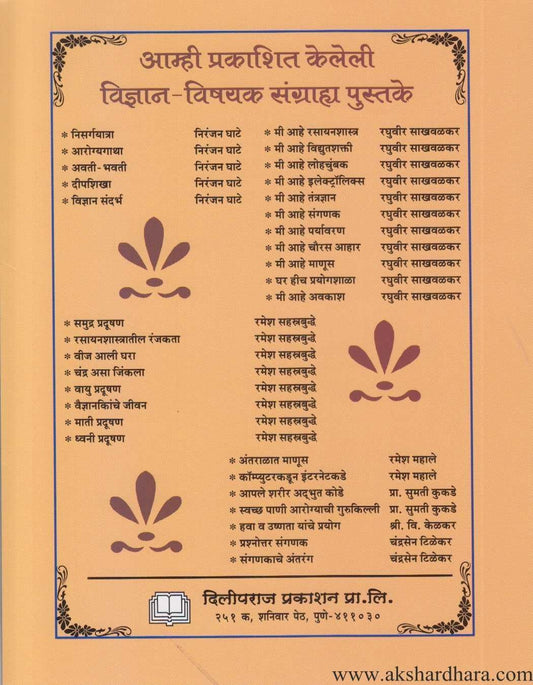 आम्ही प्रकाशित केलेली
विज्ञान-विषयक संग्राह्य पुस्तके
* निसर्गयात्रा निरंजन घाटे
* आरोग्यगाथा निरंजन घाटे
* अवती-भवती निरंजन घाटे
* दीपशिखा निरंजन घाटे
* विज्ञान संदर्भ निरंजन घाटे
* मी आहे रसायनशास्त्र रघुवीर साखवळकर
* मी आहे विद्युतशक्ती रघुवीर साखवळकर
* मी आहे लोहचुंबक रघुवीर साखवळकर
* मी आहे इलेक्ट्रॉलिक्स रघुवीर साखवळकर
* मी आहे तंत्रज्ञान रघुवीर साखवळकर
* मी आहे संगणक रघुवीर साखवळकर
* मी आहे पर्यावरण रघुवीर साखवळकर
* मी आहे चौरस आहार रघुवीर साखवळकर
* मी आहे माणूस रघुवीर साखवळकर
* घर हीच प्रयोगशाळा रघुवीर साखवळकर
* मी आहे अवकाश रघुवीर साखवळकर
* समुद्र प्रदूषण रमेश सहस्रबुद्धे
* रसायनशास्त्रातील रंजकता रमेश सहस्रबुद्धे
* वीज आली घरा रमेश सहस्रबुद्धे
* चंद्र असा जिंकला रमेश सहस्रबुद्धे
* वायु प्रदूषण रमेश सहस्रबुद्धे
* वैज्ञानिकांचे जीवन रमेश सहस्रबुद्धे
* माती प्रदूषण रमेश सहस्रबुद्धे
* ध्वनी प्रदूषण रमेश सहस्रबुद्धे
* अंतराळात माणूस रमेश महाले
* कॉम्प्युटरकडून इंटरनेटकडे रमेश महाले
* आपले शरीर अद्‌भुत कोडे प्रा. सुमती कुकडे
* स्वच्छ पाणी आरोग्याची गुरुकिल्ली प्रा. सुमती कुकडे
* हवा व उष्णता यांचे प्रयोग श्री. वि. केळकर
* प्रश्नोत्तर संगणक चंद्रसेन टिळेकर
* संगणकाचे अंतरंग चंद्रसेन टिळेकर
दिलीपराज प्रकाशन प्रा.लि.
२५१ क, शनिवार पेठ, पुणे-४११०३०
www.akshardhara.com